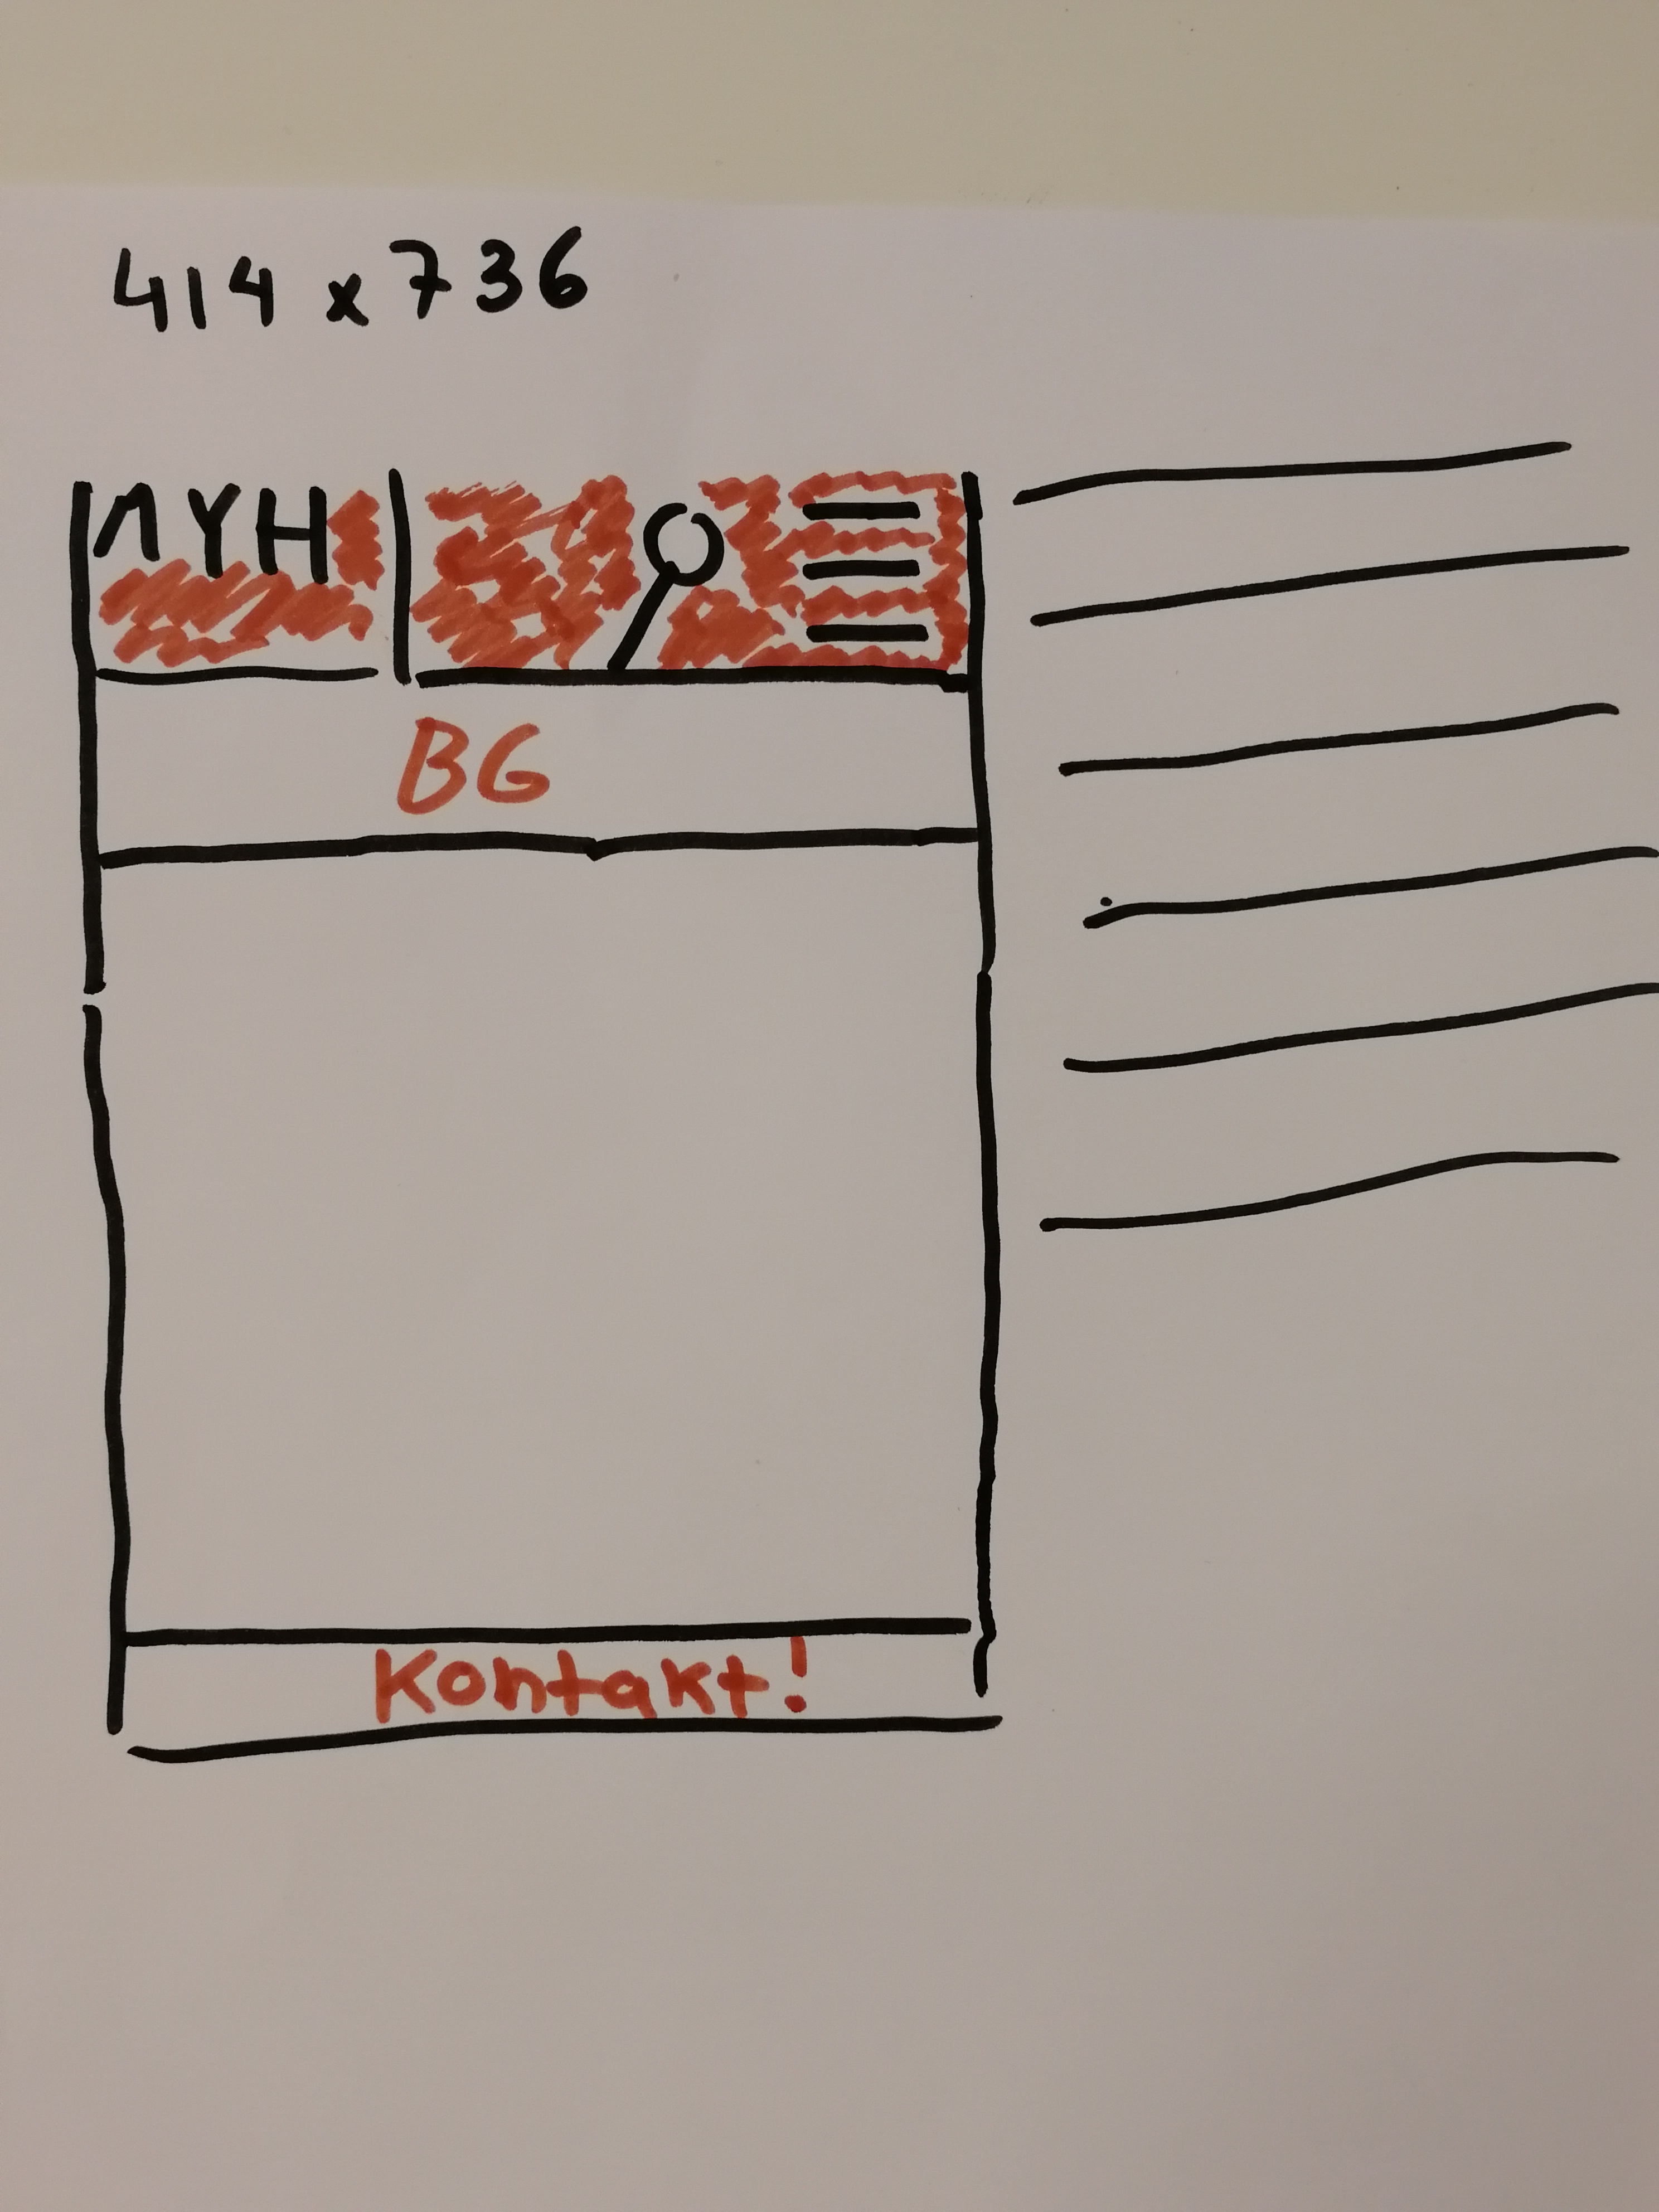 414 x 736
MYH
BG
Kontakt!